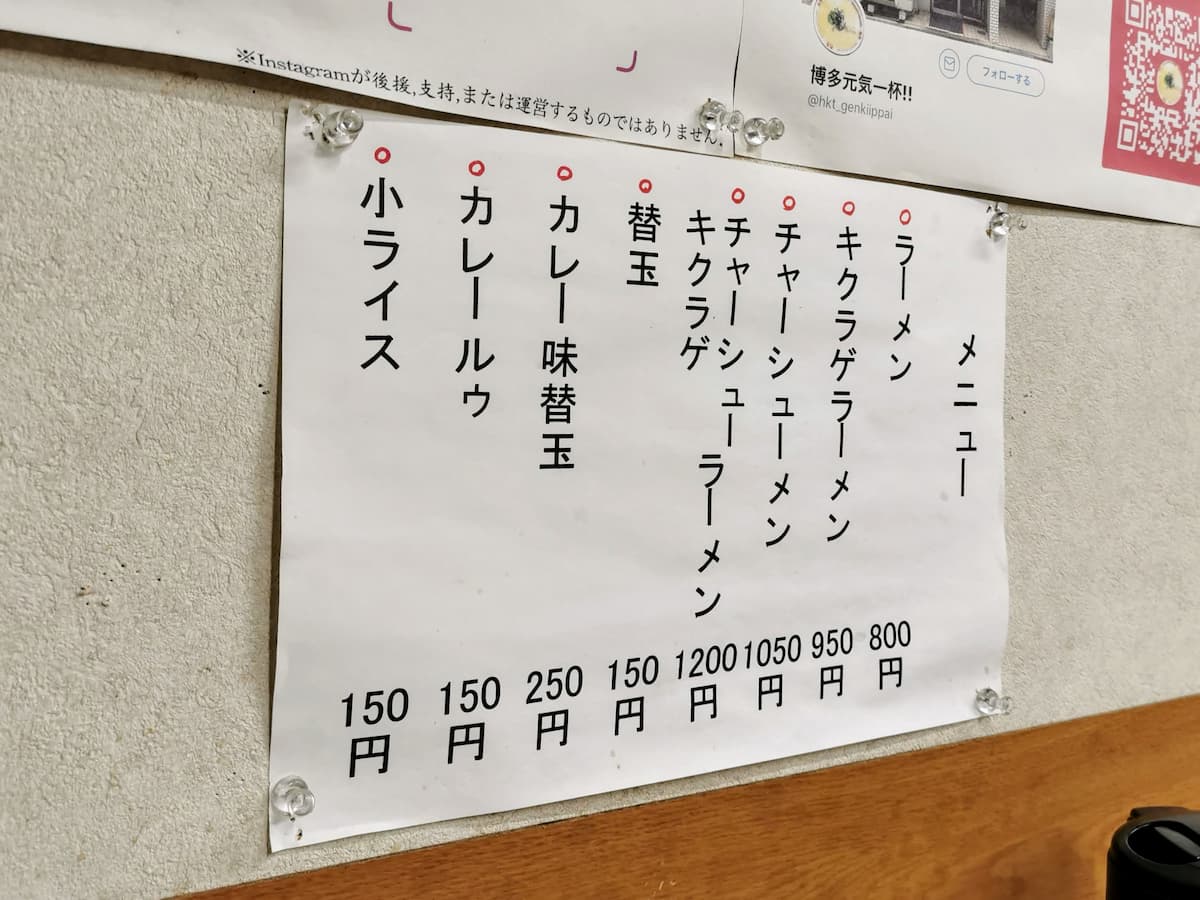 ※Instagramが後援,支持,または運営するものではありません.
博多元気一杯!!
@hkt_genkiippai
フォローする
メニュー
ラーメン 800円
キクラゲラーメン 950円
チャーシューメン 1050円
チャーシューラーメン
キクラゲ 1200円
替玉 150円
カレー味替玉 250円
カレールゥ 150円
小ライス 150円